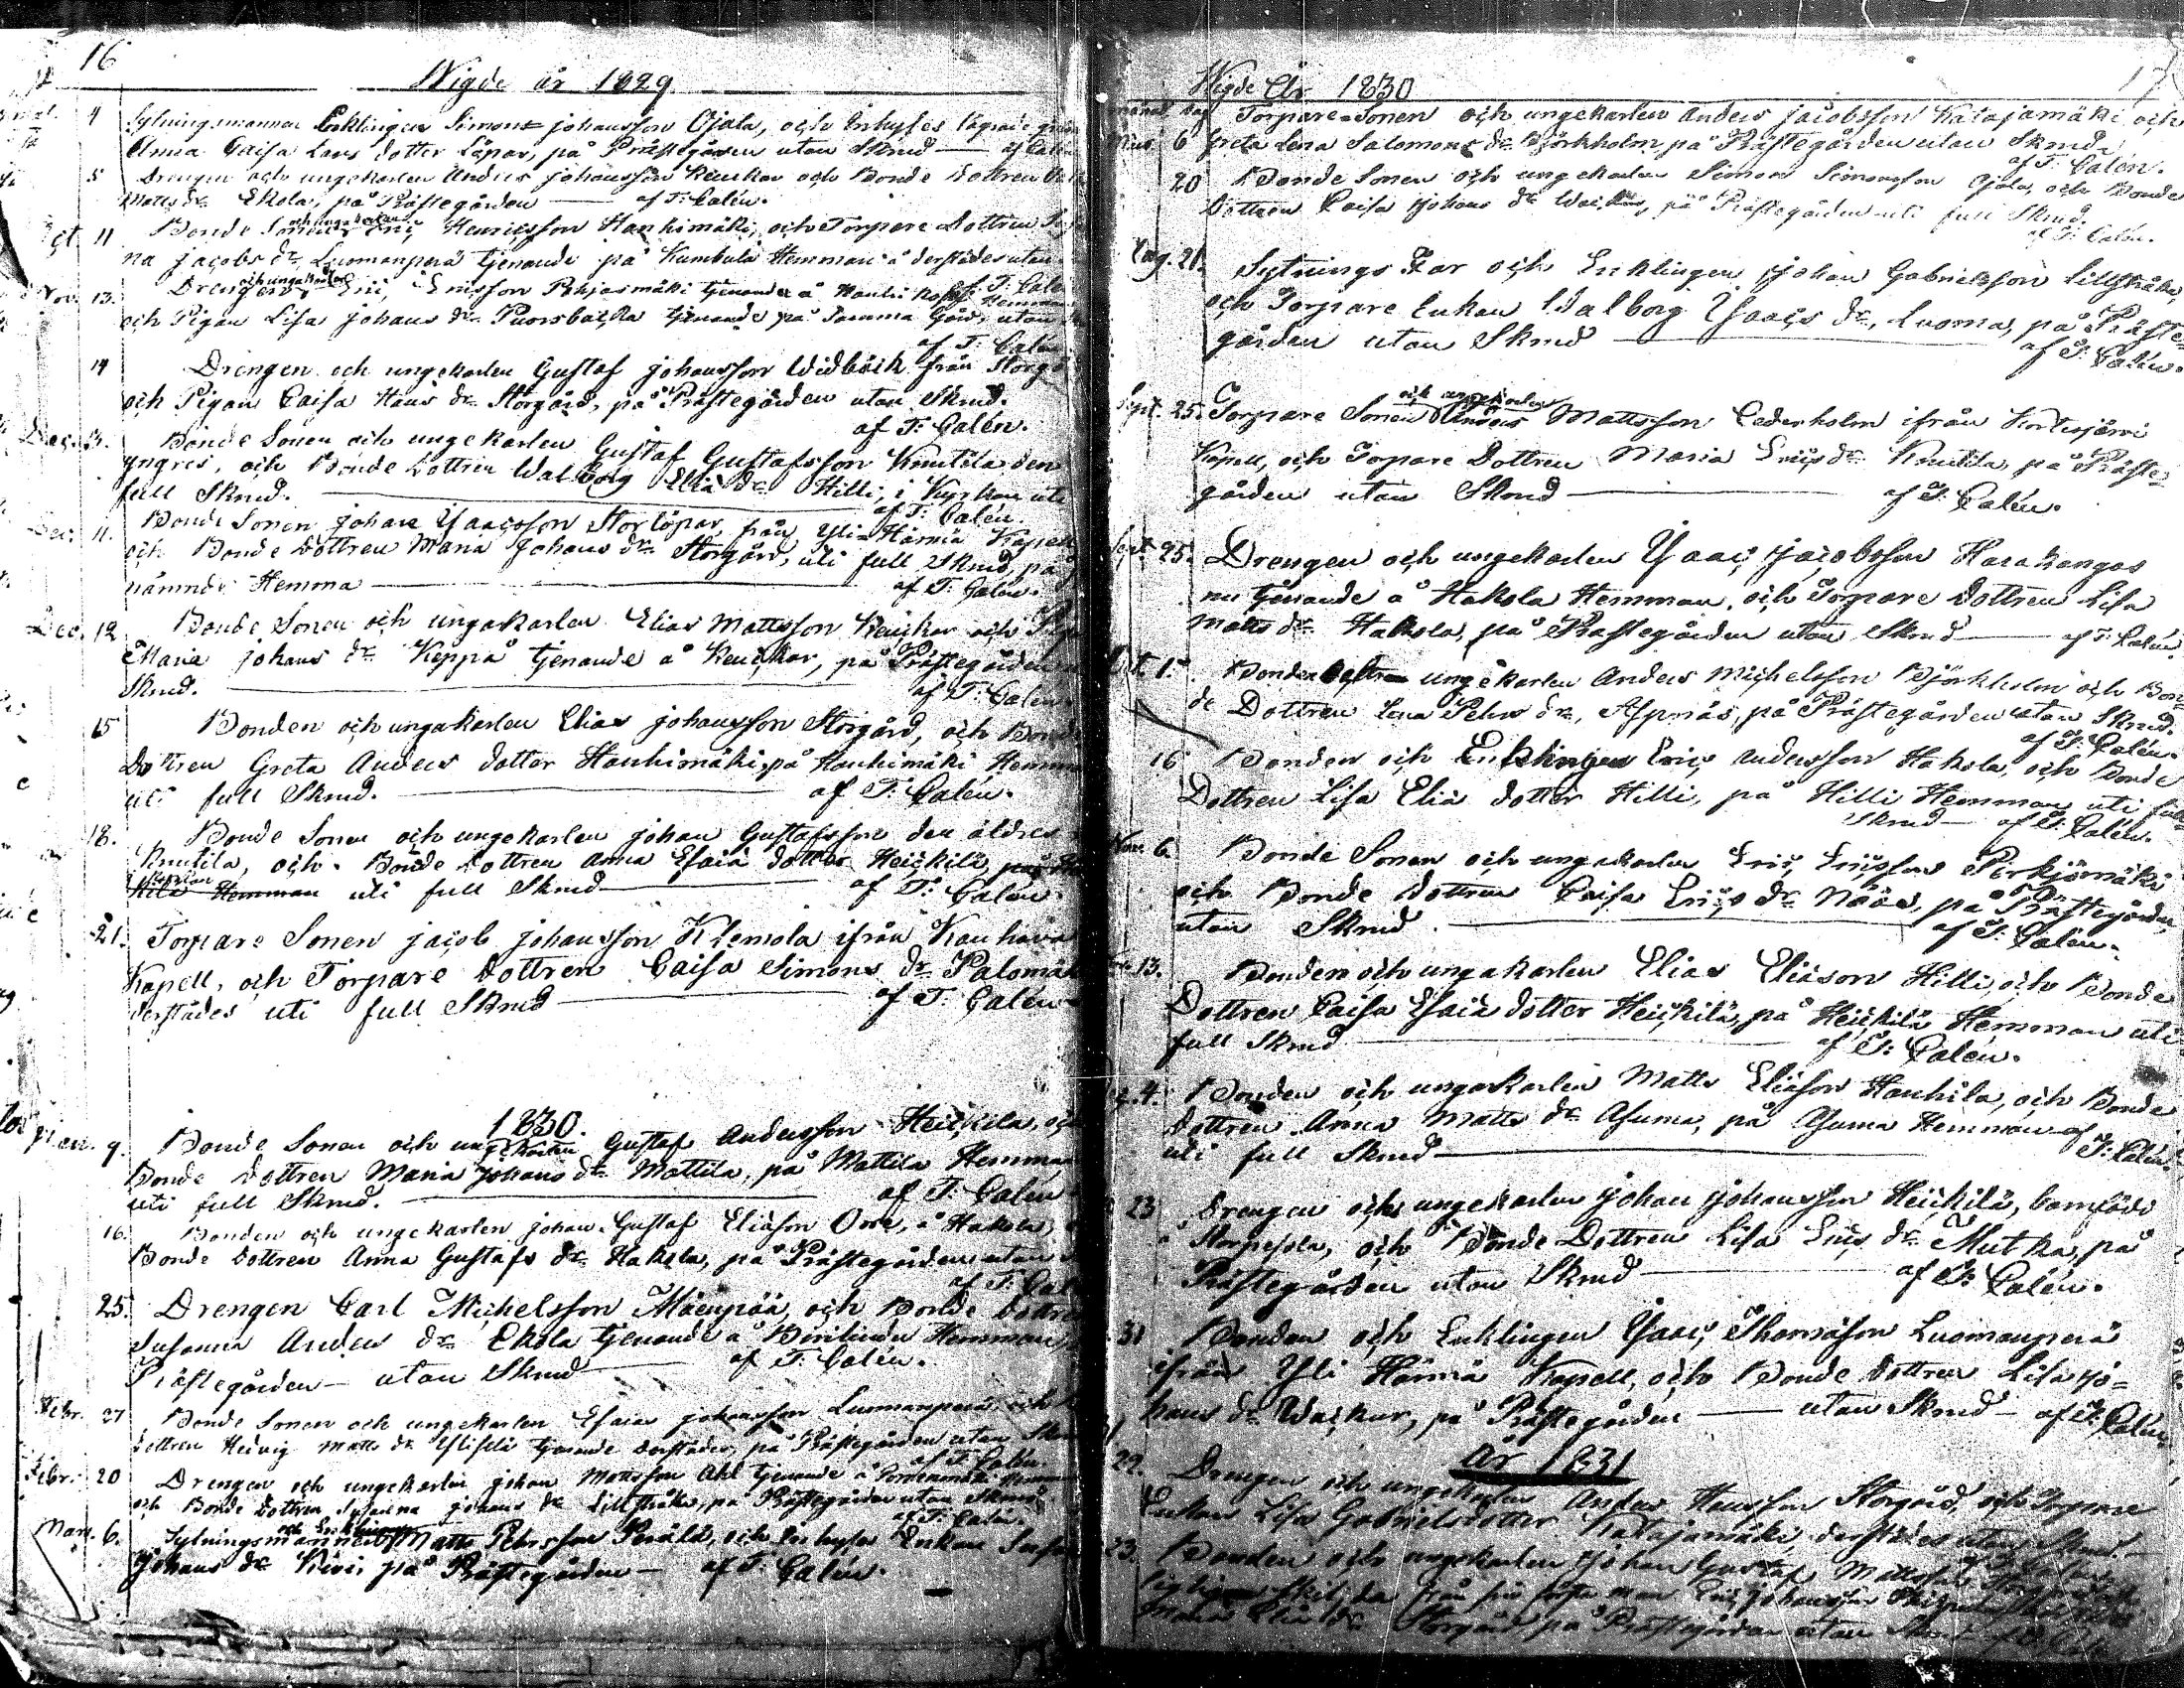 16
Wigde år 1829
4 Sytningsmannen Enklingen Simon johansson Ojala, och Inhyses
Anna Caisa Lars dotter Löpar, på Prästegården utan Skrud — af Calén
5 Drengen och ungekarlen Anders johansson Keuckar och Bonde Dottren
Matts dr Ekola, på Prästegården — af T: Calén.
11 Bonde Sonen och ungekarlen Eric Henricsson Hanhimäki, och Torpare Dottren
na jacobs dr Luomanperä tjenande på Kumbula Hemman å derstädes utan
af T: Calén
Nov. 13. Drengen och ungekarlen Eric Ericsson Pohjasmäki tjenande å
och Pigan Lisa johans dr Puorsbacka tjenande på samma Gård, utan
af T: Calén
14 Drengen och ungekarlen Gustaf johansson Widbäck från Storgå
och Pigan Caisa Hans dr Storgård, på Prästegården utan Skrud.
af T: Calén.
Dec. 3. Bonde Sonen och ungekarlen Gustaf Gustafsson Knutila den
yngres, och Bonde Dottren Walborg Eliä dr Hilli, i Kyrkan uti
full Skrud. — af T: Calén.
Dec. 11. Bonde Sonen johan Ysaacsson Storlöpar, från Yli-Härmä Kapell
och Bonde Dottren Maria Johans dr Storgård, uti full Skrud, på
nämnde Hemma — af T: Galén.
Dec. 12 Bonde Sonen och ungakarlen Elias Mattsson Keuckar och
Maria johans dr Keppa tjenande å Keuckar, på Prästegården
Skrud. — af T: Calén.
15 Bonden och ungakarlen Elias johansson Storgård, och Bonde
Dottren Greta Anders dotter Hanhimäki, på Hanhimäki Hemman
uti full Skrud. — af T: Calén.
18. Bonde Sonen och ungekarlen johan Gustafsson den äldres
Knutila, och Bonde Dottren Anna Esaiä dotter Heickilä,
Kyrkan
Hemman uti full Skrud — af T: Calén.
21. Torpare Sonen jacob johansson Klemola ifrån Kauhava
Kapell, och Torpare Dottren Caisa Simons dr Palomäk
derstädes uti full Skrud — af T: Calén
1830.
Jan. 9. Bonde Sonen och ungekarlen Gustaf Andersson Heickilä, och
Bonde Dottren Maria Johans dr Mattila, på Mattila Hemman
uti full Skrud. — af T: Calén
16. Bonden och ungekarlen johan Gustaf Eliäson Ora, å Hakola,
Bonde Dottren Anna Gustafs dr Hakola, på Prästegården utan
af T: Cal
25. Drengen Carl Michelsson Mäenpää, och Bonde Dottren
Susanna Anders dr Ekola tjenande å Hemman,
Prästegården — utan Skrud — af T: Calén.
Febr. 27 Bonde Sonen och ungekarlen Esaias johansson Luomanperä, och
Dottren Hedvig Matts dr tjenande derstädes, på Prästegården utan Skrud
af T: Calén.
Febr. 20 Drengen och ungekarlen johan Mattsson Ahl tjenande å
och Bonde Dottren Susanna johans dr Lillstråka, på Prästegården utan Skrud.
af T: Calén.
Mars. 6. Sytningsmannen och Enklingen Matts Pehrsson Perälä, och Inhyses Enkan
johans dr Kivi, på Prästegården — af T: Calén.
17
Wigde År 1830
månad dag Torpare-Sonen och ungekarlen Anders jacobsson Katajamäki och
6 Greta Lena Salomons dr Björkholm på Prästegården utan Skrud.
af T. Calén.
20 Bonde Sonen och ungekarlen Simon Simonsson Ojala, och Bonde
Dottren Caisa Johans dr på Prästegården uti full Skrud.
af T: Calén.
Aug. 21. Sytnings Kar och Enklingen Johan Gabrielsson Lillstråka,
och Torpare Enkan Walborg Ysaacs dr, Luoma, på Präste=
gården utan Skrud — af T: Calén.
Sept. 25. Torpare Sonen och ungekarlen Anders Mattsson Cederholm ifrån Kortesjärvi
Kapell, och Torpare Dottren Maria Erics dr Knutila, på Präste=
gården utan Skrud — af T: Calén.
Sept. 25. Drengen och ungekarlen Ysaac Jacobsson Harakangas
nu tjenande å Hakola Hemman, och Torpare Dottren Lisa
Matts dr Hakola, på Prästegården utan Skrud — af T: Calén.
Oct. 1. Bonden ungekarlen Anders Michelsson Björkholm och Bon=
de Dottren Lena Pehrs dr, Aspnäs, på Prästegården utan Skrud.
af T: Calén.
16 Bonden och Enklingen Eric Andersson Hakola, och Bonde
Dottren Lisa Eliä dotter Hilli, på Hilli Hemman uti full
Skrud — af T: Calén.
Nov. 6. Bonde Sonen och ungekarlen Eric Ericsson Pirkjömäki
och Bonde Dottren Caisa Erics dr Nääs, på Prästegården,
utan Skrud. — af T: Calén.
13. Bonden och ungakarlen Elias Eliäson Hilli, och Bonde
Dottren Caisa Esaiä dotter Heickilä, på Heickilä Hemman uti
full Skrud — af T: Calén.
4. Bonden och ungakarlen Matts Eliäson Hanhila, och Bonde
Dottren Anna Matts dr Asuma, på Asuma Hemman
uti full Skrud — af T: Calén.
23 Drengen och ungekarlen Johan Johansson Heickilä, barnföde
å Storpesola, och Bonde Dottren Lisa Erics dr Mutka, på
Prästegården utan Skrud — af T: Calén.
31 Bonden och Enklingen Ysaac Thomäson Luomanperä
ifrån Yli Härmä Kapell, och Bonde Dottren Lisa Jo=
hans dr Wackar, på Prästegården — utan Skrud — af T: Calén,
År 1831
22. Drengen och ungekarlen Anders Hansson Storgård, och Torpare
Enkan Lisa Gabrielsdotter Katajamäki, derstädes utan Skrud. —
23. Bonden och ungekarlen Johan Gustaf Mattsson
från sin man Eric Johansson
Maria Eliä dr Storgård på Prästegården utan Skrud